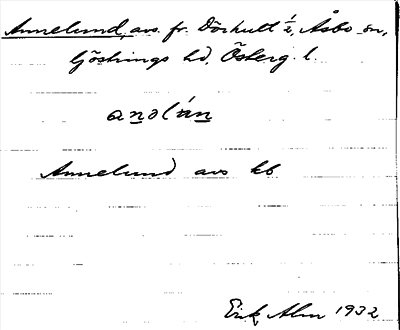 Annelund, avs. fr. Dörhult 1/2, Åsbo sn,
Göstrings hd, Österg. l.
anəlán
Annelund avs kb
Erik Alm 1932